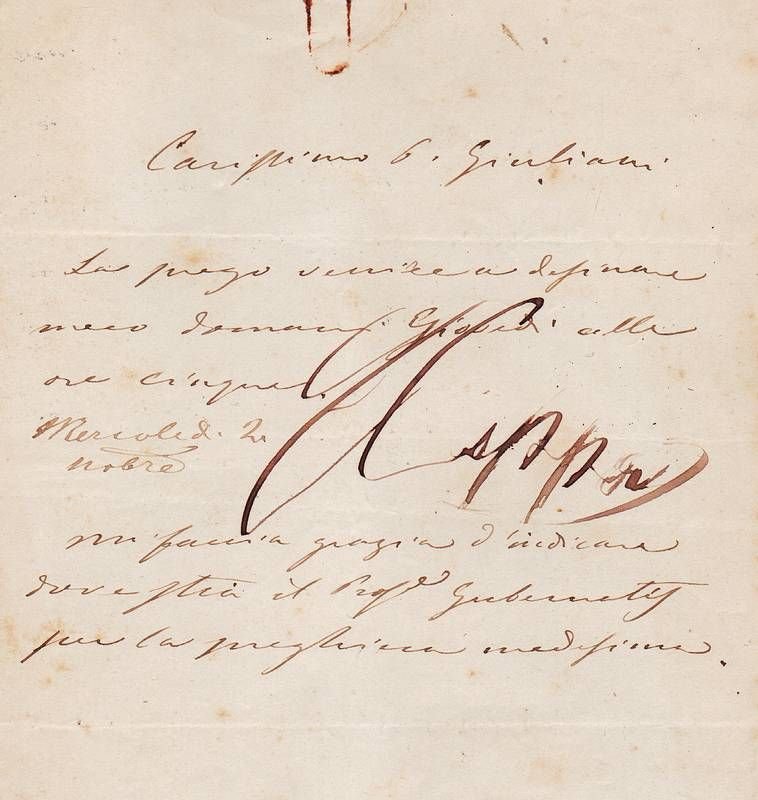 Carissimo G. Giuliani
La prego venire a desinare
meco domani Giovedì alle
ore cinque.
Mercoledì 2
nobre
mi faccia grazia d'indicare
dove stia il Profe Gubernatis
per la preghiera medesima.